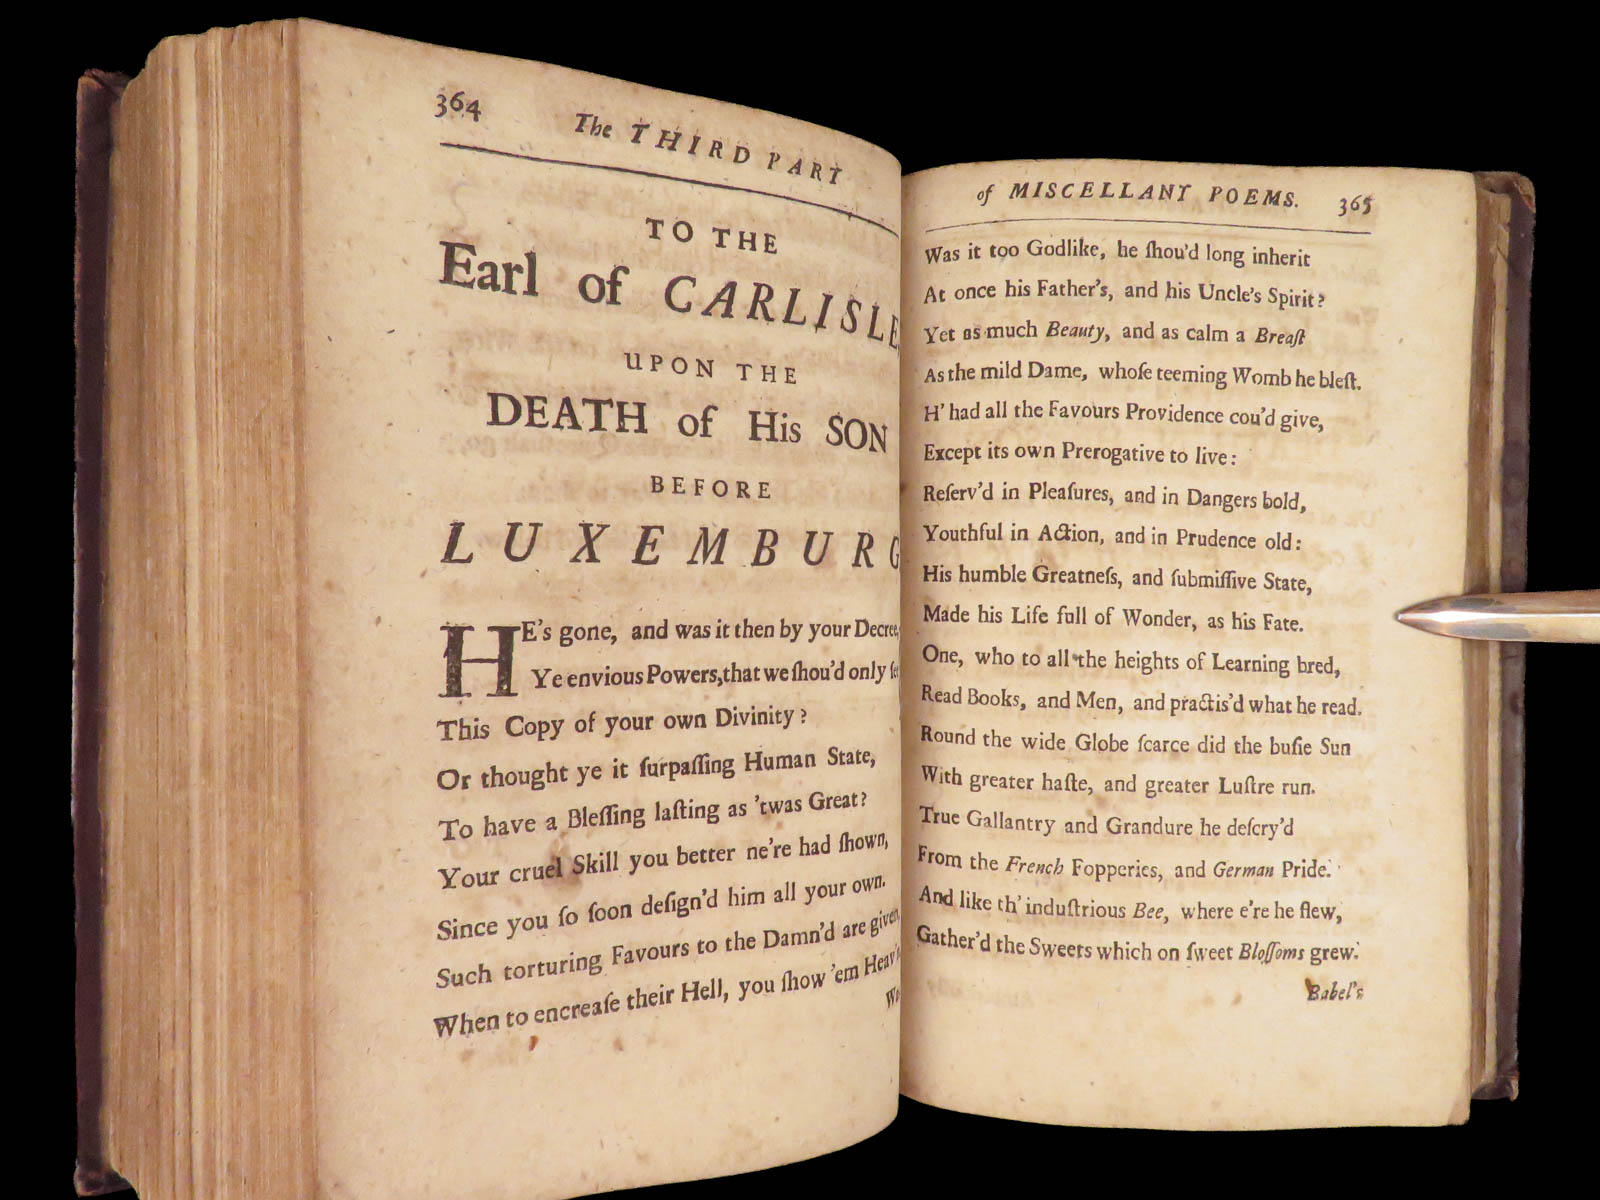 364
The THIRD PART
TO THE
Earl of CARLISLE,
UPON THE
DEATH of His SON
BEFORE
LUXEMBURG
HE's gone, and was it then by your Decree,
Ye envious Powers, that we ſhou'd only
This Copy of your own Divinity?
Or thought ye it ſurpaſſing Human State,
To have a Bleſſing laſting as 'twas Great?
Your cruel Skill you better ne're had ſhown,
Since you ſo ſoon deſign'd him all your own.
Such torturing Favours to the Damn'd are given,
When to encreaſe their Hell, you ſhow 'em
of MISCELLANY POEMS. 365
Was it too Godlike, he ſhou'd long inherit
At once his Father's, and his Uncle's Spirit?
Yet as much Beauty, and as calm a Breaſt
As the mild Dame, whoſe teeming Womb he bleſt.
H' had all the Favours Providence cou'd give,
Except its own Prerogative to live:
Reſerv'd in Pleaſures, and in Dangers bold,
Youthful in Action, and in Prudence old:
His humble Greatneſs, and ſubmiſſive State,
Made his Life full of Wonder, as his Fate.
One, who to all the heights of Learning bred,
Read Books, and Men, and practis'd what he read.
Round the wide Globe ſcarce did the buſie Sun
With greater haſte, and greater Luſtre run.
True Gallantry and Grandure he deſcry'd
From the French Fopperies, and German Pride.
And like th' induſtrious Bee, where e're he flew,
Gather'd the Sweets which on ſweet Bloſſoms grew.
Babel's